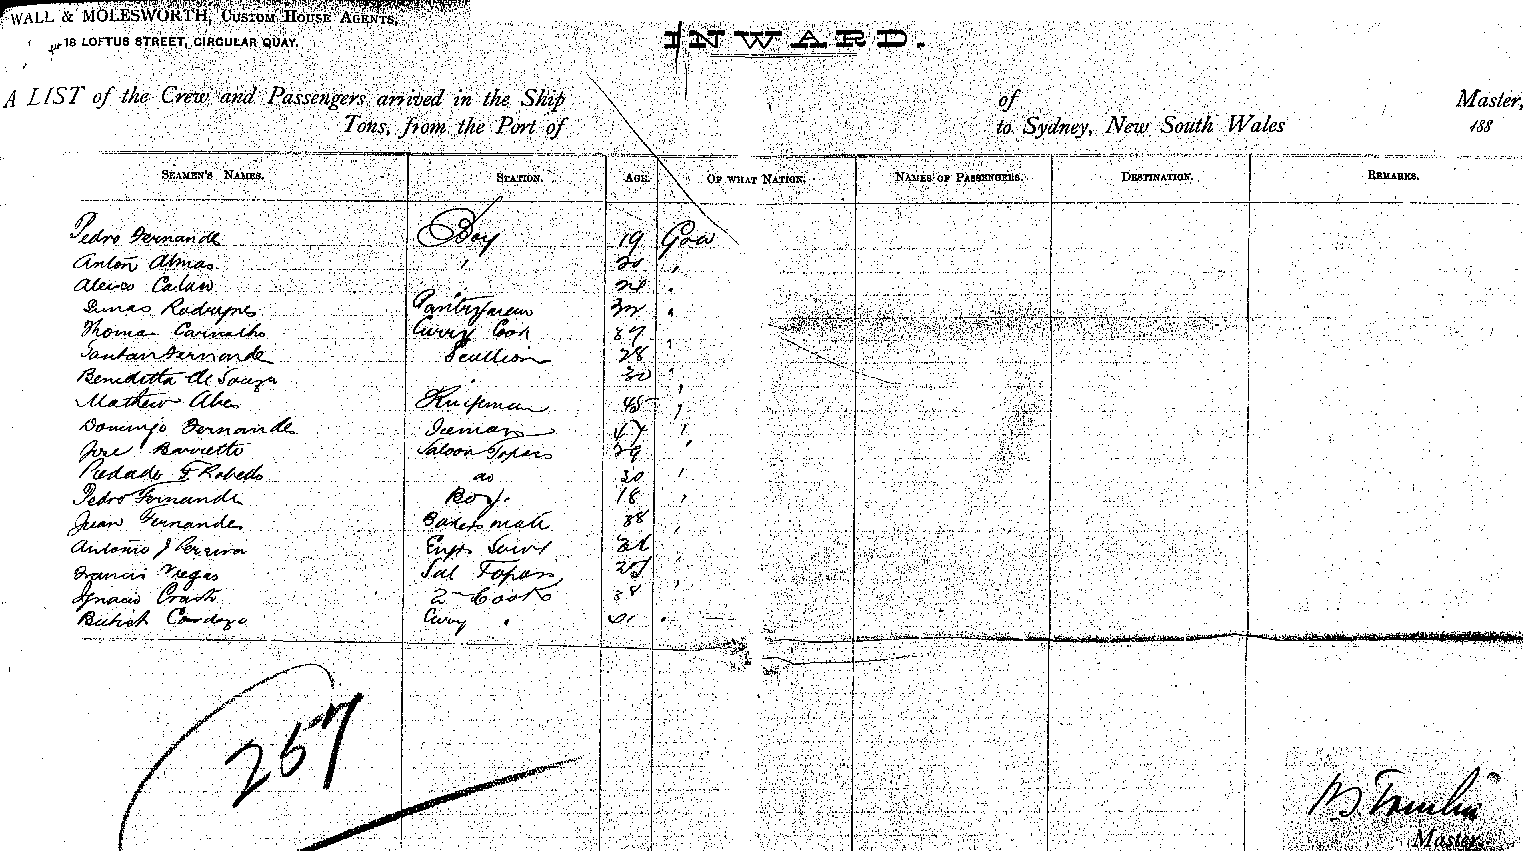 WALL & MOLESWORTH, CUSTOM HOUSE AGENTS,
18 LOFTUS STREET, CIRCULAR QUAY.
INWARD.
A LIST of the Crew and Passengers arrived in the Ship of Master,
Tons, from the Port of to Sydney, New South Wales 188
SEAMEN'S NAMES. STATION. AGE. OF WHAT NATION. NAMES OF PASSENGERS. DESTINATION. REMARKS.
Pedro Fernande Boy 19 Goa
Anton Almas 20
24
Rodrigues Pantryman 32
Thomas Carvalho Curry Cook 37
Fernande Scullion 28
Benedetta de Souza 30
Mathew 45
Domingo Fernandes Iceman 47
Jose Barretto Saloon Topas 29
Piedade F Robeds do 30
Pedro Fernande Boy. 18
Juan Fernandes Bakers mate 38
Antonio J Pereira
Francis Viegas Sal Topass
Ignacio 2nd Cook 38
Curry
257
Tomlin
Master.